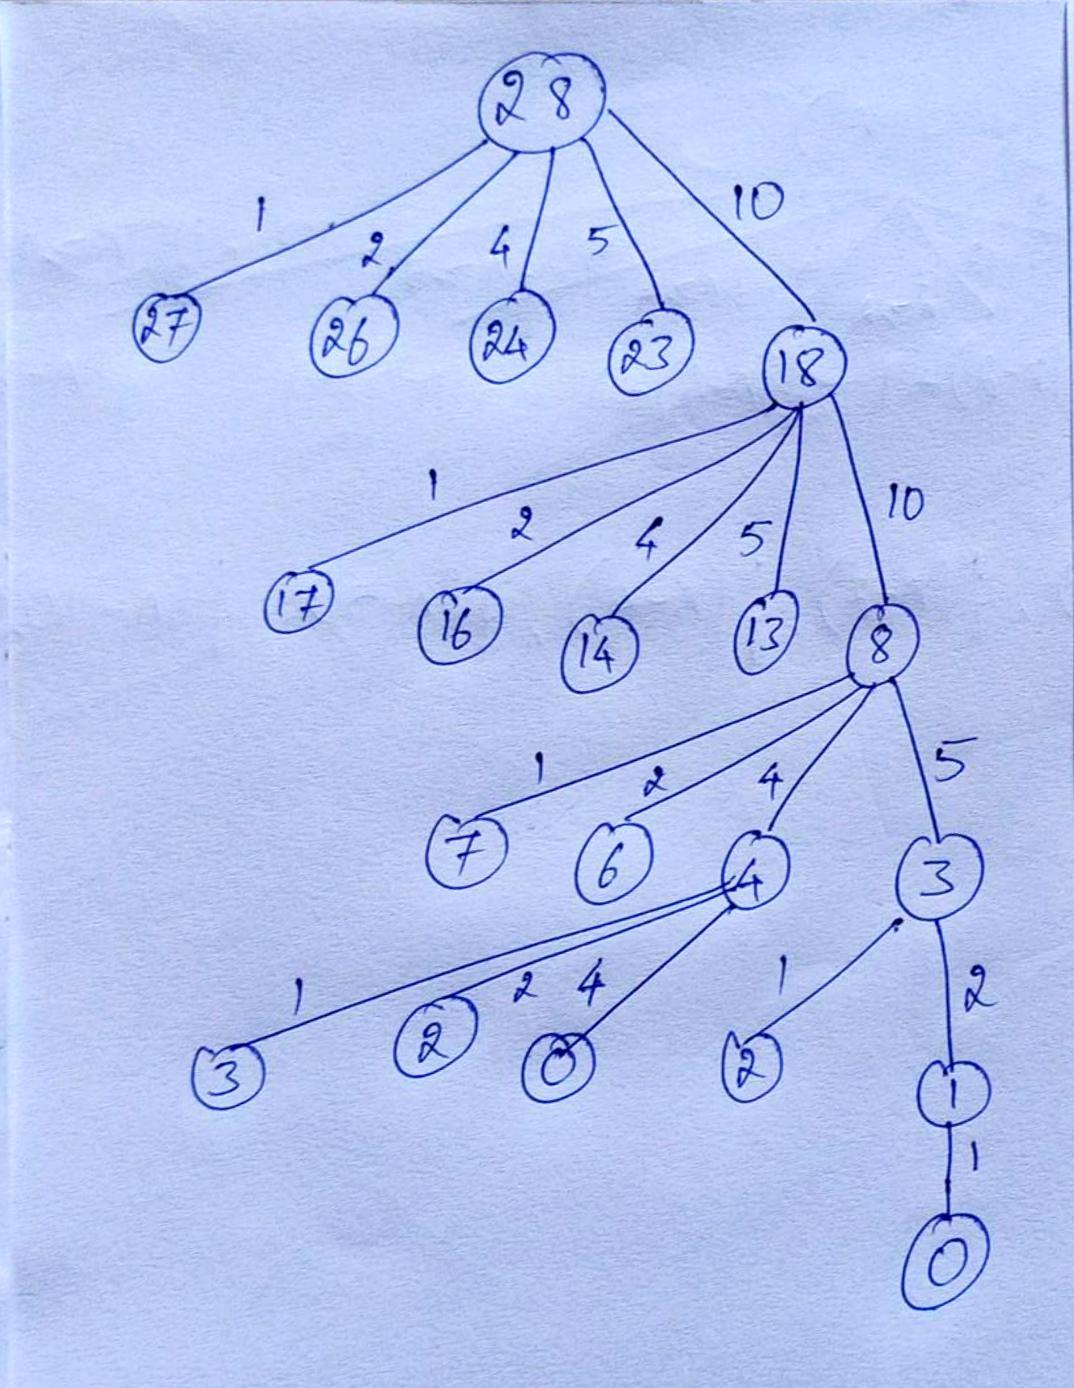 28
1 2 4 5 10
27 26 24 23 18
1 2 4 5 10
17 16 14 13 8
1 2 4 5
7 6 4 3
1 2 4 1 2
3 2 0 2 1
1
0